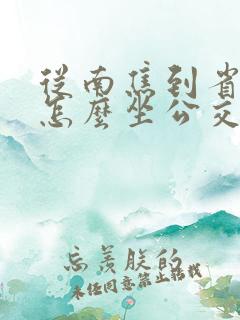 從南焦到省
怎麼坐公交
忘羨朕的
未经同意禁止搭载